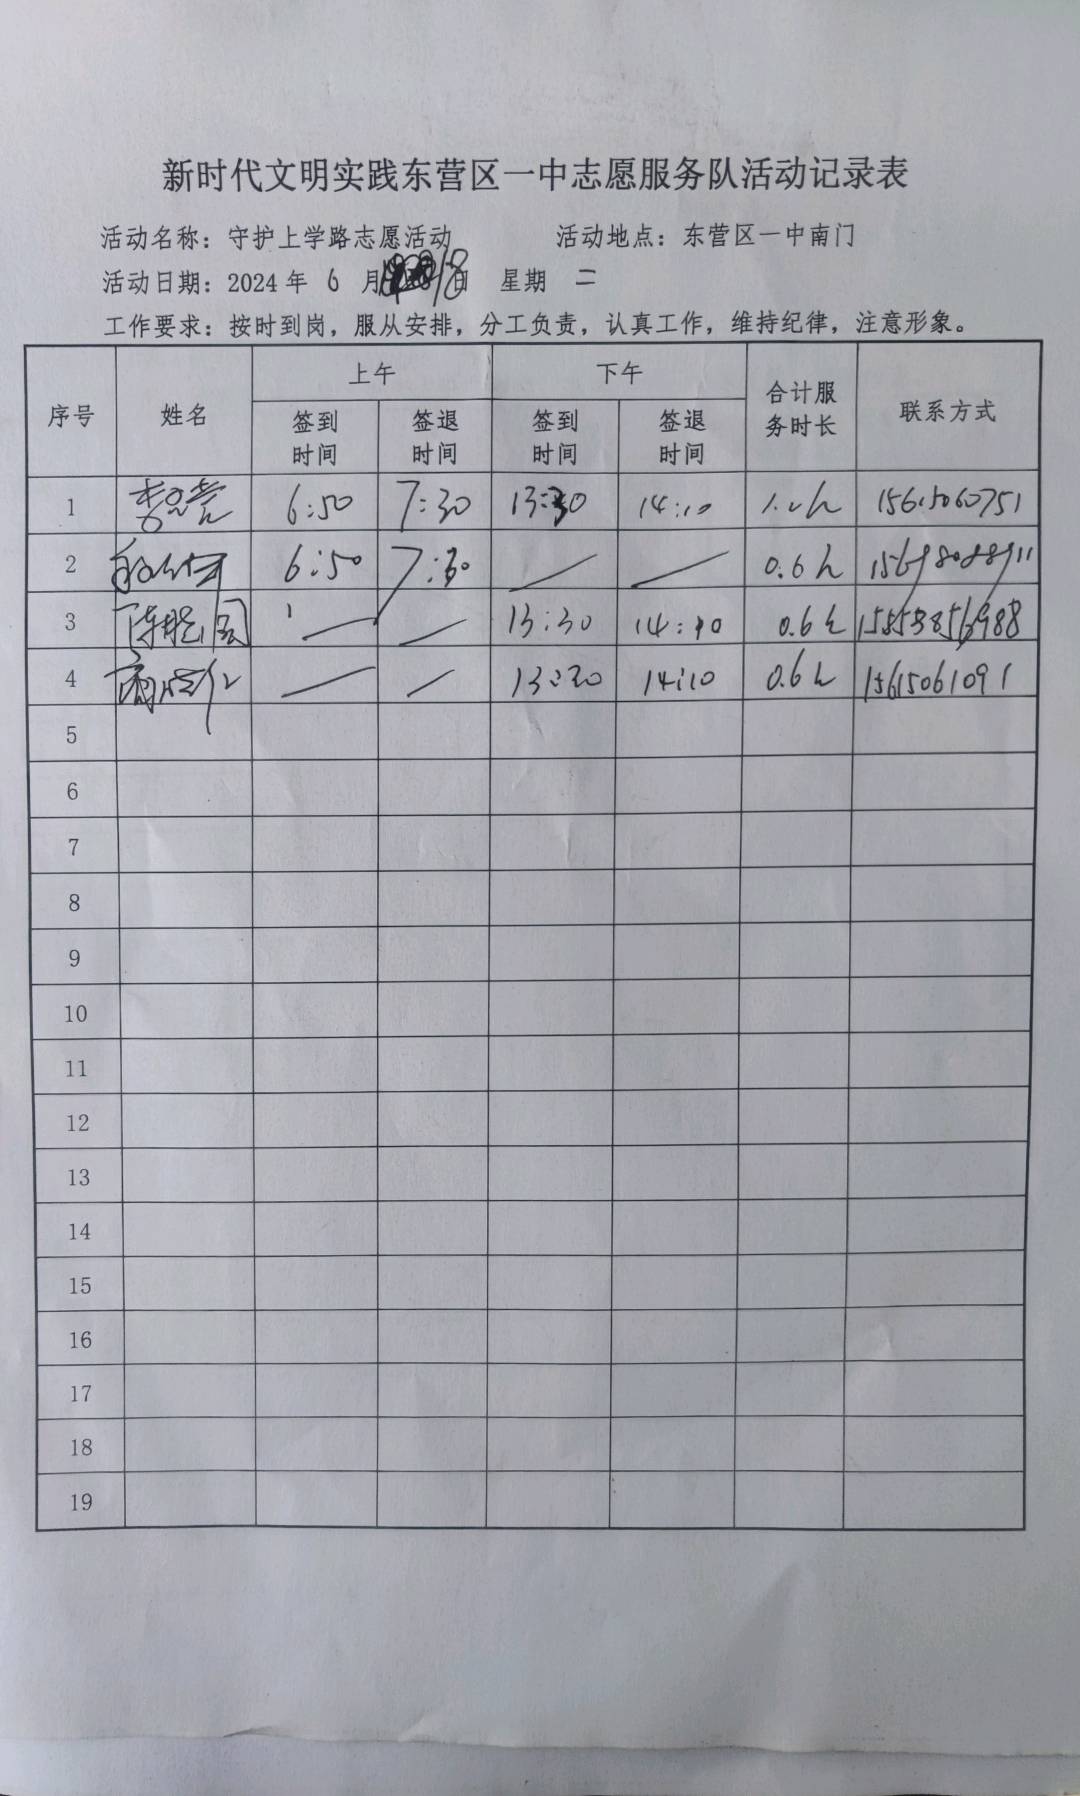 新时代文明实践东营区一中志愿服务队活动记录表
活动名称：守护上学路志愿活动 活动地点：东营区一中南门
活动日期：2024年 6 月 18 日 星期 二
工作要求：按时到岗，服从安排，分工负责，认真工作，维持纪律，注意形象。
序号 姓名 上午 下午 合计服务时长 联系方式
签到时间 签退时间 签到时间 签退时间
1 6:50 7:30 13:30 14:10 15615060751
2 6:50 7:30 — — 0.6h
3 — — 13:30 14:10 0.6h 15553856988
4 — — 13:30 14:10 0.6h 15615061091
5
6
7
8
9
10
11
12
13
14
15
16
17
18
19